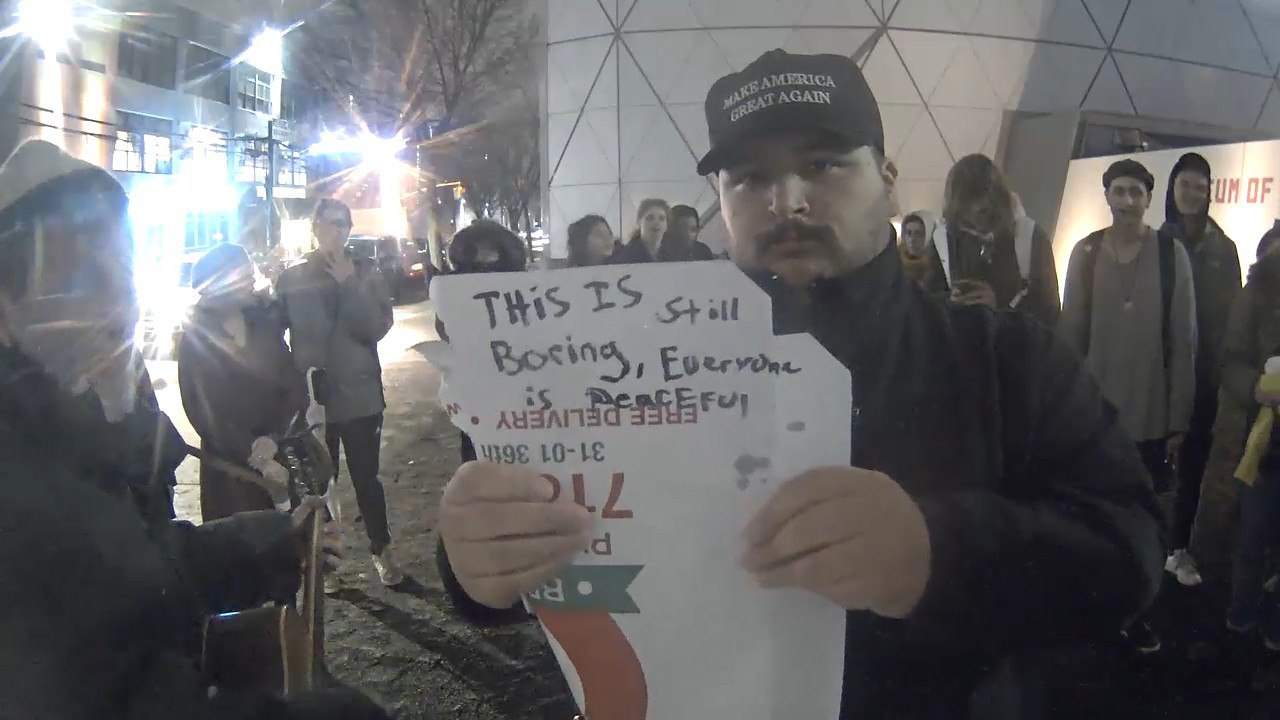 MAKE AMERICA
GREAT AGAIN
UM OF
THIS IS Still
Boring, Everyone
is PEACEFUl
FREE DELIVERY •
31-01 36th
718